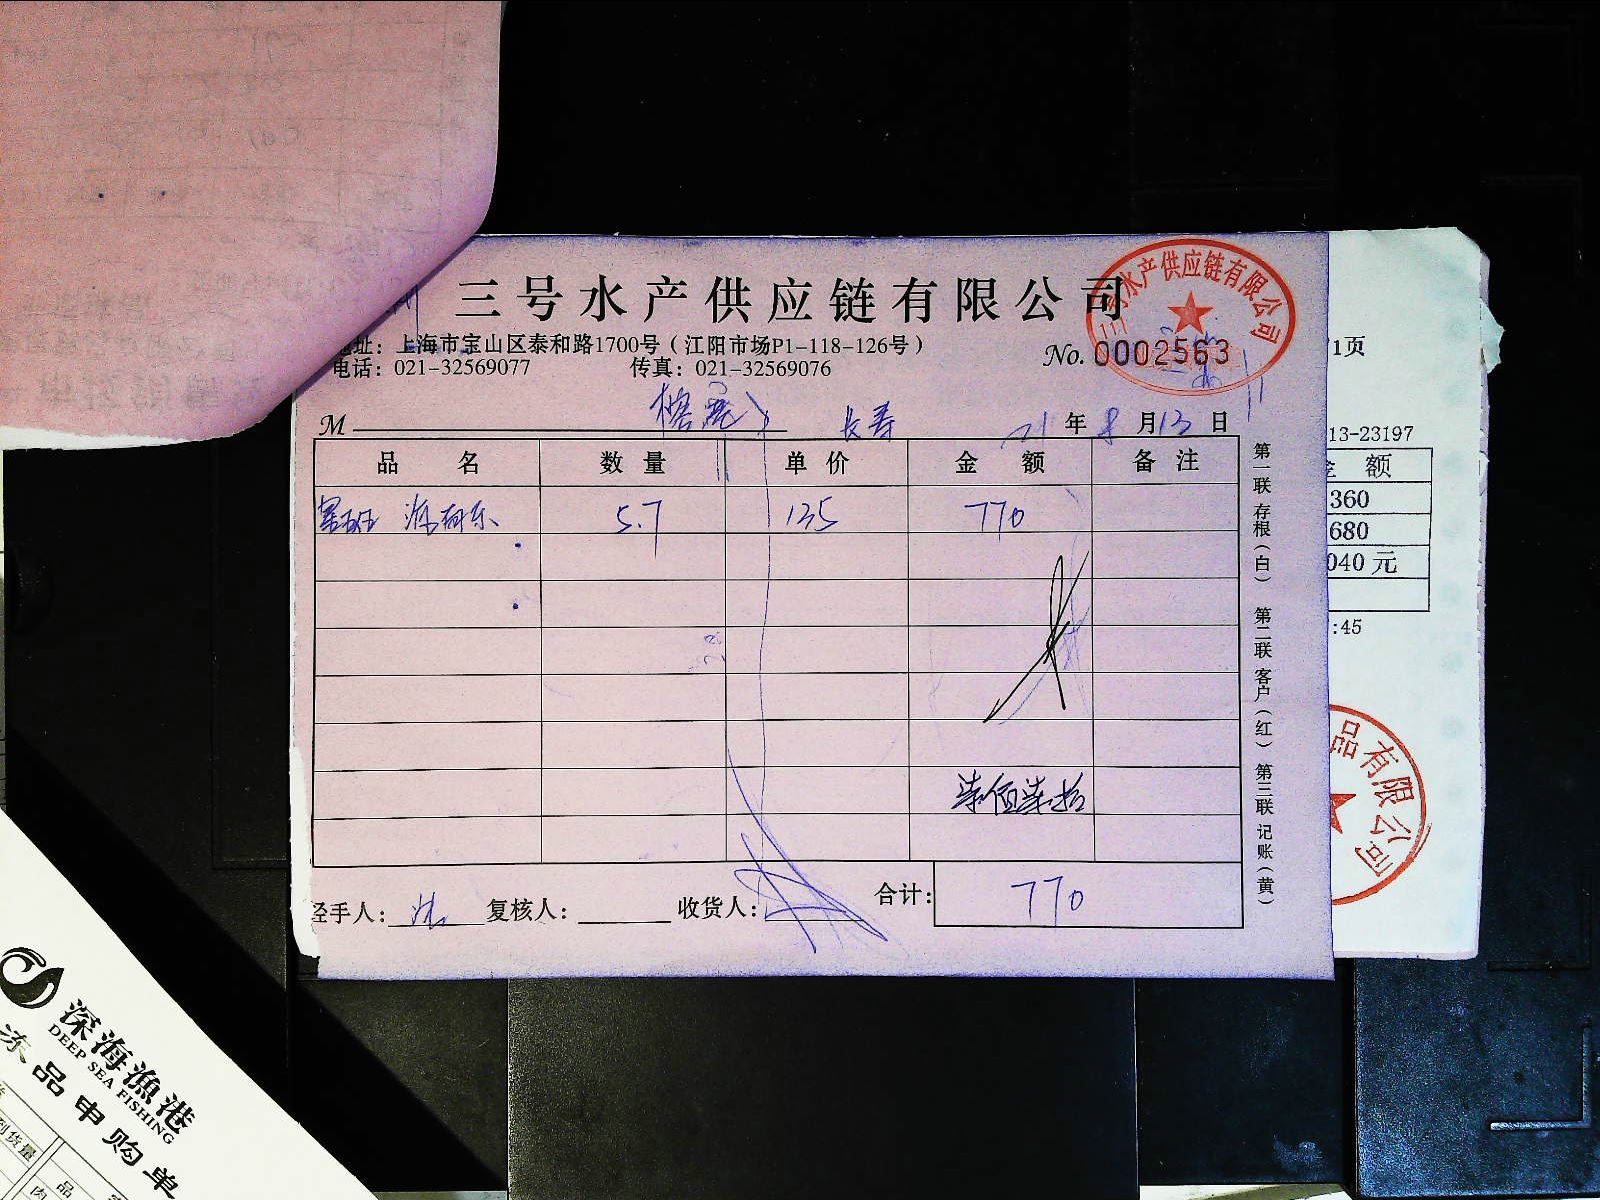 三号水产供应链有限公司
三号水产供应链有限公司
地址：上海市宝山区泰和路1700号（江阳市场P1-118-126号）
No. 0002563
电话：021-32569077 传真：021-32569076
M 长寿 21 年 8 月 13 日
品 名 数 量 单 价 金 额 备 注
5.7 135 770
柒佰柒拾
合计： 770
经手人： 复核人： 收货人：
第一联 存根（白） 第二联 客户（红） 第三联 记账（黄）
1页
13-23197
金 额
360
680
040 元
:45
品有限公司
深海漁港
DEEP SEA FISHING
冻品申购单
到货量
品
肉